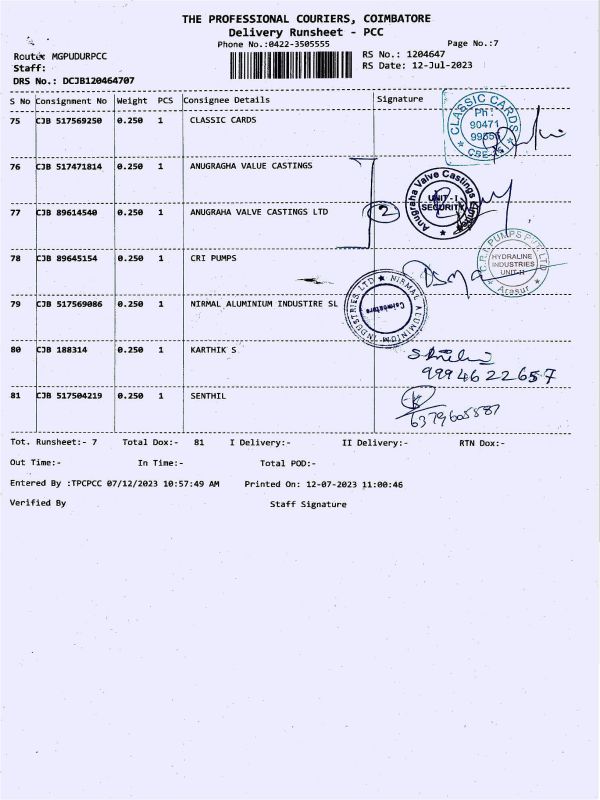 THE PROFESSIONAL COURIERS, COIMBATORE
Delivery Runsheet - PCC
Phone No.:0422-3505555
Page No.:7
Route: MGPUDURPCC
RS No.: 1204647
Staff:
RS Date: 12-Jul-2023
DRS No.: DCJB120464707
S No Consignment No Weight PCS Consignee Details Signature
75 CJB 517569250 0.250 1 CLASSIC CARDS
CLASSIC CARDS
Ph:
90471
CBE
76 CJB 517471814 0.250 1 ANUGRAGHA VALUE CASTINGS
Anugraha Valve Castings Limited
UNIT - I
SECURITY
77 CJB 89614540 0.250 1 ANUGRAHA VALVE CASTINGS LTD
2
78 CJB 89645154 0.250 1 CRI PUMPS
C.R.I. PUMPS PVT. LTD
HYDRALINE
INDUSTRIES
UNIT-II
Arasur
79 CJB 517569086 0.250 1 NIRMAL ALUMINIUM INDUSTIRE SL
NIRMAL ALUMINIUM INDUSTRIES LTD
Coimbatore
80 CJB 188314 0.250 1 KARTHIK S
9994622657
81 CJB 517504219 0.250 1 SENTHIL
6379605587
Tot. Runsheet:- 7 Total Dox:- 81 I Delivery:- II Delivery:- RTN Dox:-
Out Time:- In Time:- Total POD:-
Entered By :TPCPCC 07/12/2023 10:57:49 AM Printed On: 12-07-2023 11:00:46
Verified By Staff Signature